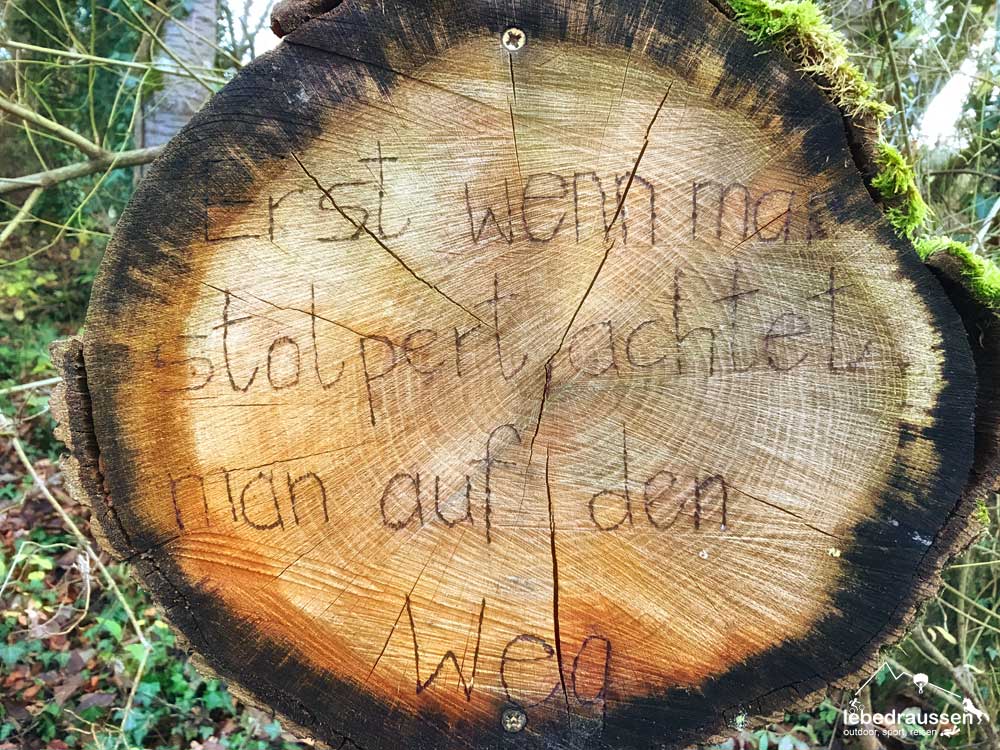 Erst wenn man
stolpert achtet
man auf den
Weg
lebedraussen
outdoor, sport, reisen